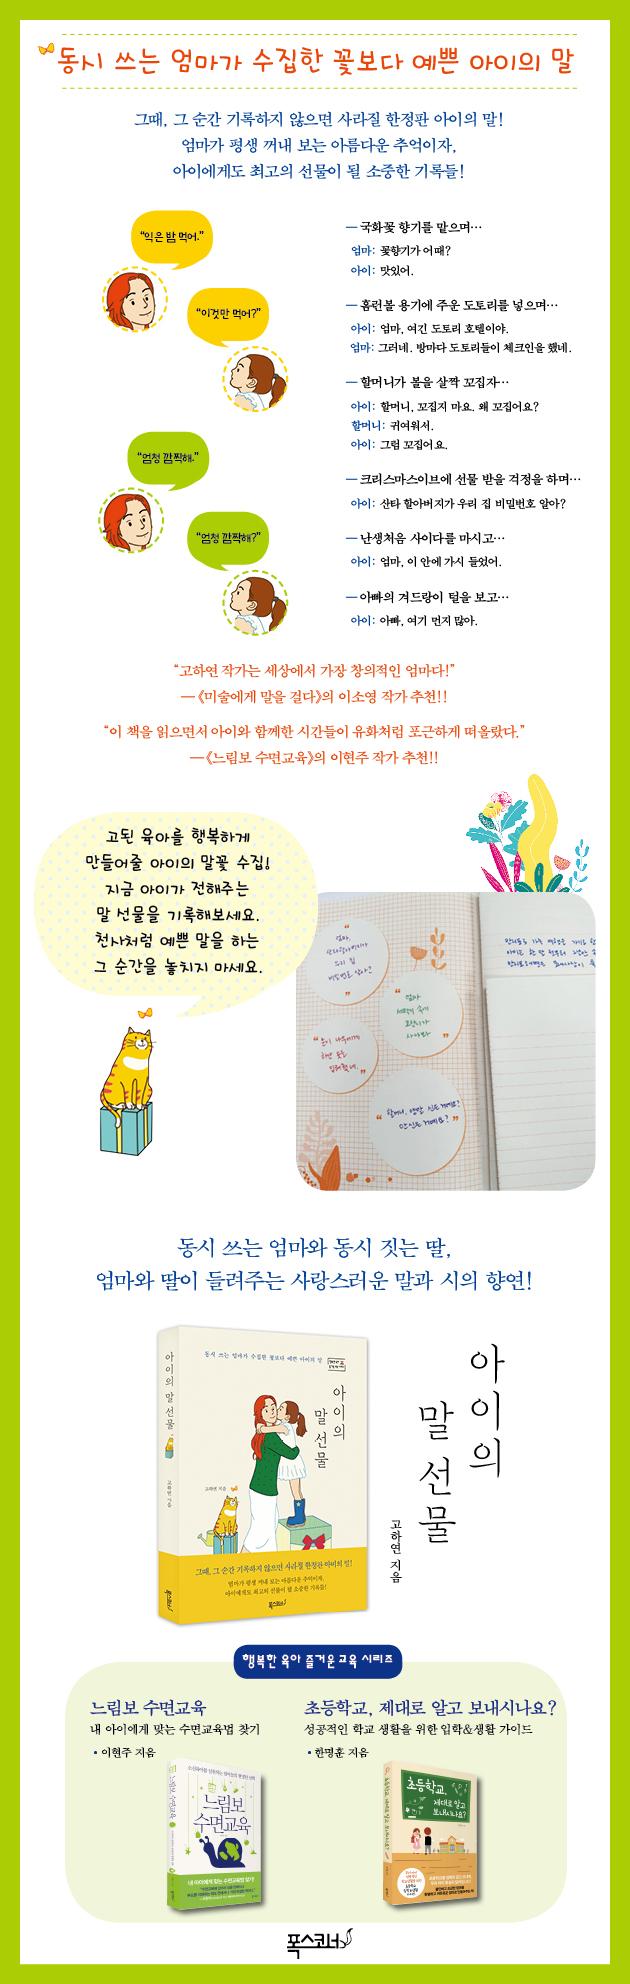 동시 쓰는 엄마가 수집한 꽃보다 예쁜 아이의 말
그때, 그 순간 기록하지 않으면 사라질 한정판 아이의 말!
엄마가 평생 꺼내 보는 아름다운 추억이자,
아이에게도 최고의 선물이 될 소중한 기록들!
“익은 밤 먹어.”
“이것만 먹어?”
“엄청 깜찍해.”
“엄청 끔찍해?”
— 국화꽃 향기를 맡으며…
엄마: 꽃향기가 어때?
아이: 맛있어.
— 홈런볼 용기에 주운 도토리를 넣으며…
아이: 엄마, 여긴 도토리 호텔이야.
엄마: 그러네. 방마다 도토리들이 체크인을 했네.
— 할머니가 볼을 살짝 꼬집자…
아이: 할머니, 꼬집지 마요. 왜 꼬집어요?
할머니: 귀여워서.
아이: 그럼 꼬집어요.
— 크리스마스이브에 선물 받을 걱정을 하며…
아이: 산타 할아버지가 우리 집 비밀번호 알아?
— 난생처음 사이다를 마시고…
아이: 엄마, 이 안에 가시 들었어.
— 아빠의 겨드랑이 털을 보고…
아이: 아빠, 여기 먼지 많아.
“고하연 작가는 세상에서 가장 창의적인 엄마다!”
—《미술에게 말을 걸다》의 이소영 작가 추천!!
“이 책을 읽으면서 아이와 함께한 시간들이 유화처럼 포근하게 떠올랐다.”
—《느림보 수면교육》의 이현주 작가 추천!!
고된 육아를 행복하게
만들어줄 아이의 말꽃 수집!
지금 아이가 전해주는
말 선물을 기록해보세요.
천사처럼 예쁜 말을 하는
그 순간을 놓치지 마세요.
엄마,
산타할아버지가
우리 집
비밀번호 알아?
엄마
동시 쓰는 엄마와 동시 짓는 딸,
엄마와 딸이 들려주는 사랑스러운 말과 시의 향연!
아이의 말 선물
고하연 지음
동시 쓰는 엄마가 수집한 꽃보다 예쁜 아이의 말
아이의
말 선물
고하연 지음
그때, 그 순간 기록하지 않으면 사라질 한정판 아이의 말!
엄마가 평생 꺼내 보는 아름다운 추억이자,
아이에게도 최고의 선물이 될 소중한 기록들!
폭스코너
아이의
말 선물
고하연 지음
행복한 육아 즐거운 교육 시리즈
느림보 수면교육
내 아이에게 맞는 수면교육법 찾기
• 이현주 지음
느림보
수면교육
내 아이에게 맞는 수면교육법 찾기!
초등학교, 제대로 알고 보내시나요?
성공적인 학교 생활을 위한 입학&생활 가이드
• 한명훈 지음
초등학교,
제대로 알고
보내시나요?
폭스코너